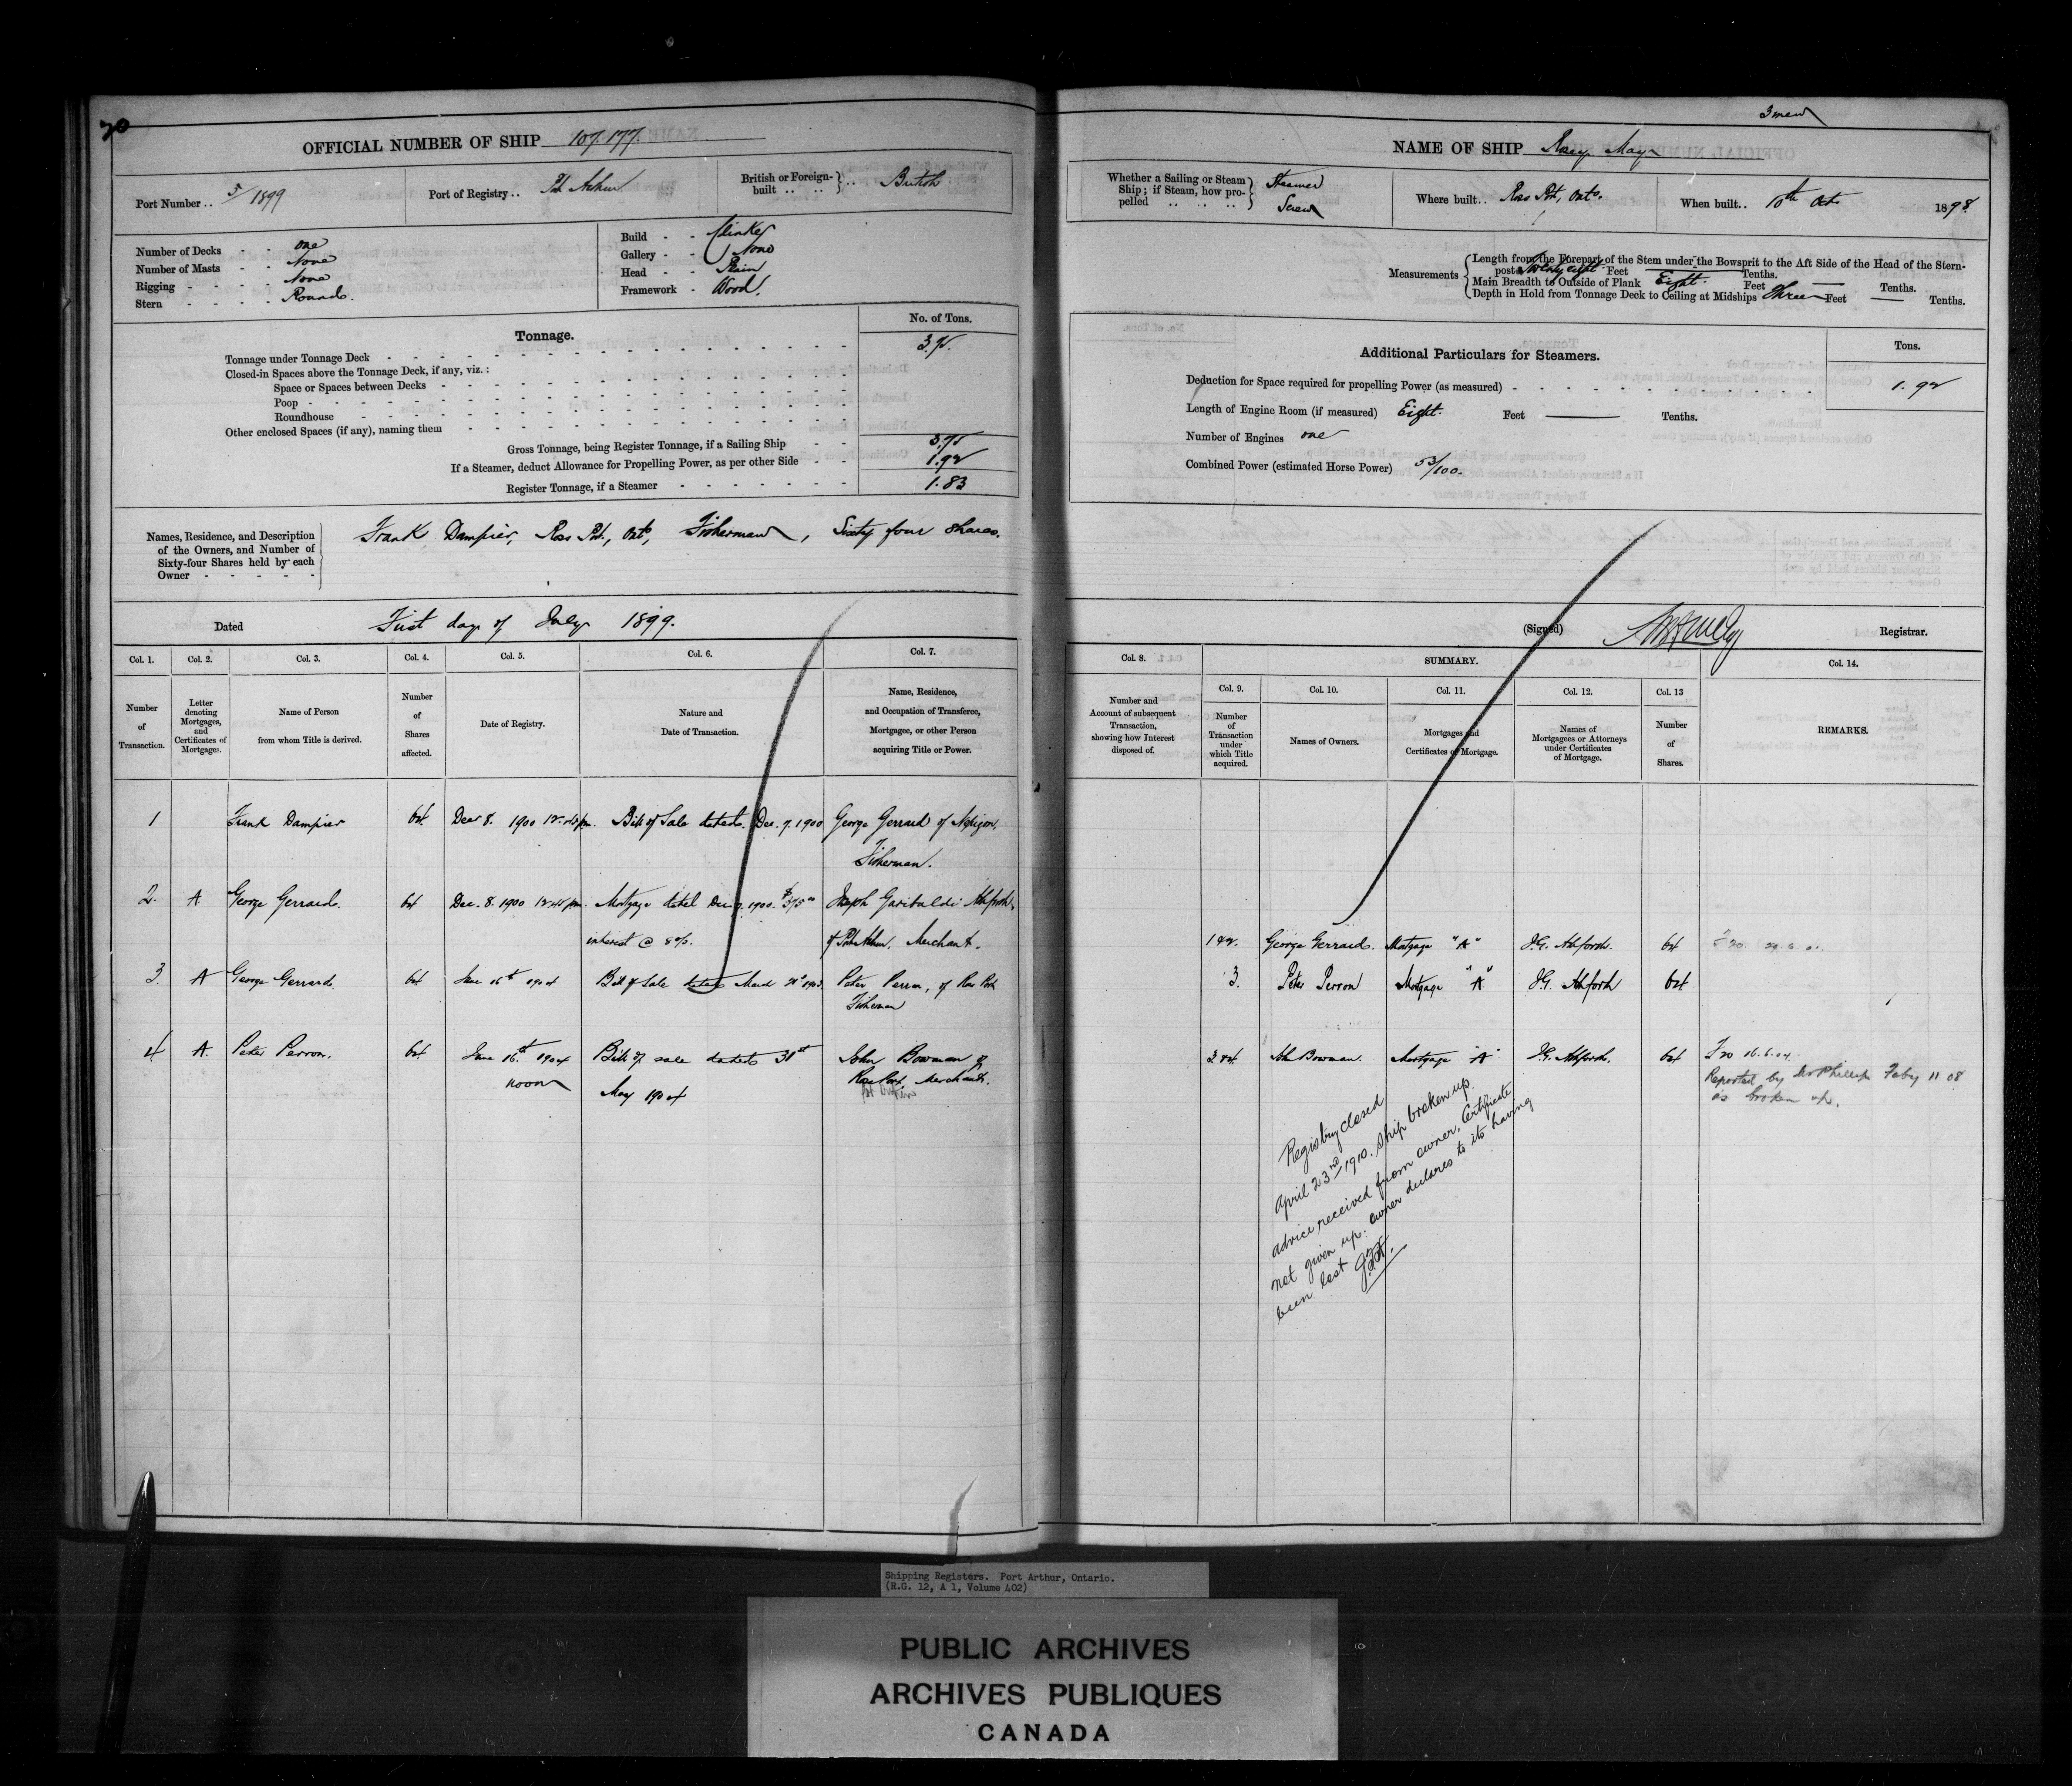 70
OFFICIAL NUMBER OF SHIP 107.177.
Port Number .. 5/1899
Port of Registry .. Pt Arthur
British or Foreign-built .. .. } .. British
Number of Decks - - one
Number of Masts - - None
Rigging - - - - None
Stern - - - - Round.
Build - - Clinker
Gallery - - None
Head - - Plain
Framework - Wood.
Tonnage.
No. of Tons.
Tonnage under Tonnage Deck 3.75.
Closed-in Spaces above the Tonnage Deck, if any, viz.:
Space or Spaces between Decks
Poop
Roundhouse
Other enclosed Spaces (if any), naming them
Gross Tonnage, being Register Tonnage, if a Sailing Ship 3.75
If a Steamer, deduct Allowance for Propelling Power, as per other Side 1.92
Register Tonnage, if a Steamer 1.83
Names, Residence, and Description
of the Owners, and Number of
Sixty-four Shares held by each
Owner
Frank Dampier, Ross Pt., Ont., Fisherman, Sixty four Shares.
Dated First day of July 1899.
Col. 1. Col. 2. Col. 3. Col. 4. Col. 5. Col. 6. Col. 7.
Number of Transaction.
Letter denoting Mortgages, and Certificates of Mortgages.
Name of Person from whom Title is derived.
Number of Shares affected.
Date of Registry.
Nature and Date of Transaction.
Name, Residence, and Occupation of Transferee, Mortgagee, or other Person acquiring Title or Power.
1 Frank Dampier 64. Decr 8. 1900 Bill of Sale dated Dec. 7. 1900 George Gerrard of Nepigon,
Fisherman.
2. A George Gerrard. 64 Dec. 8. 1900 Mortgage dated Dec 7. 1900. $375.00 Joseph Garibaldi Ashforth,
interest @ 8%. of Port Arthur. Merchant.
3. A George Gerrard. 64 June 16th 1904 Bill of Sale dated March 1903. Peter Perron, of Ross Port
Fisherman
4 A. Peter Perron. 64 June 16th 1904 Bill of sale dated 31st John Bowman of
noon May 1904 Ross Port, Merchant.
3 men
NAME OF SHIP Rosey May
Whether a Sailing or Steam Ship; if Steam, how propelled Steamer Screw
Where built.. Ross Pt, Onto.
When built.. 10th Oct 1898.
Measurements
Length from the Forepart of the Stem under the Bowsprit to the Aft Side of the Head of the Stern-
post Twenty eight Feet — Tenths.
Main Breadth to Outside of Plank Eight. Feet — Tenths.
Depth in Hold from Tonnage Deck to Ceiling at Midships Three Feet — Tenths.
Additional Particulars for Steamers.
Tons.
Deduction for Space required for propelling Power (as measured) 1.92
Length of Engine Room (if measured) Eight. Feet — Tenths.
Number of Engines one
Combined Power (estimated Horse Power) 53/100.
(Signed) Registrar.
Col. 8. SUMMARY. Col. 14.
Col. 9. Col. 10. Col. 11. Col. 12. Col. 13
Number and Account of subsequent Transaction, showing how Interest disposed of.
Number of Transaction under which Title acquired.
Names of Owners.
Mortgages and Certificates of Mortgage.
Names of Mortgagees or Attorneys under Certificates of Mortgage.
Number of Shares.
REMARKS.
1 & 2. George Gerrard. Mortgage "A" J.G. Ashforth. 64
3. Peter Perron Mortgage "A" J.G. Ashforth 64
3 & 4. John Bowman. Mortgage "A" J.G. Ashforth. 64 F 20 16.6.04.
Reported by Mr Phillips Feby 11 08
as broken up.
Registry closed
April 23rd 1910. Ship broken up.
advice received from owner. Certificate
not given up. owner declares to its having
been lost
Shipping Registers. Port Arthur, Ontario.
(R.G. 12, A 1, Volume 402)
PUBLIC ARCHIVES
ARCHIVES PUBLIQUES
CANADA